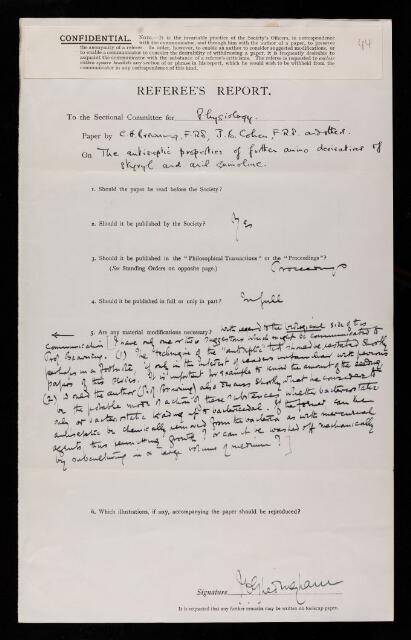 44
CONFIDENTIAL.
NOTE.—It is the invariable practice of the Society's Officers, in correspondence
with the communicator, and through him with the author of a paper, to preserve
the anonymity of a referee. In order, however, to enable an author to consider suggested modifications, or
to enable a communicator to consider the desirability of withdrawing a paper, it is frequently desirable to
acquaint the communicator with the substance of a referee's criticisms. The referee is requested to enclose
within square brackets any section of or phrase in his report, which he would wish to be withheld from the
communicator in any correspondence of this kind.
REFEREE'S REPORT.
To the Sectional Committee for Physiology.
Paper by C H Browning, F.R.S, J. B. Cohen, F.R.S. and others.
On The antiseptic properties of further amino derivatives of
styryl and anil quinoline.
1. Should the paper be read before the Society?
2. Should it be published by the Society? Yes
3. Should it be published in the "Philosophical Transactions" or the "Proceedings"?
(See Standing Orders on opposite page.) Proceedings
4. Should it be published in full or only in part? In full
5. Are any material modifications necessary? With regard to the biological side of this
communication I have only one or two suggestions which might be communicated to
Prof. Browning. (1) The technique of the "antiseptic" test should be restated shortly
perhaps in a footnote, if only in the interest of readers unfamiliar with previous
papers of this series. It is important for example to know the amount of the seeding.
(2) I should the author (Prof Browning) also discuss shortly what he considers to
be the probable mode of action of these substances, whether bacteriostatic
only or bacteriostatic leading up to bactericidal. If the former can the
antiseptic be chemically removed from the bacteria as with mercurial
agents thus permitting growth? or can it be washed off mechanically
by subculturing in a large volume of medium?]
6. Which illustrations, if any, accompanying the paper should be reproduced?
Signature
It is requested that any further remarks may be written on foolscap paper.